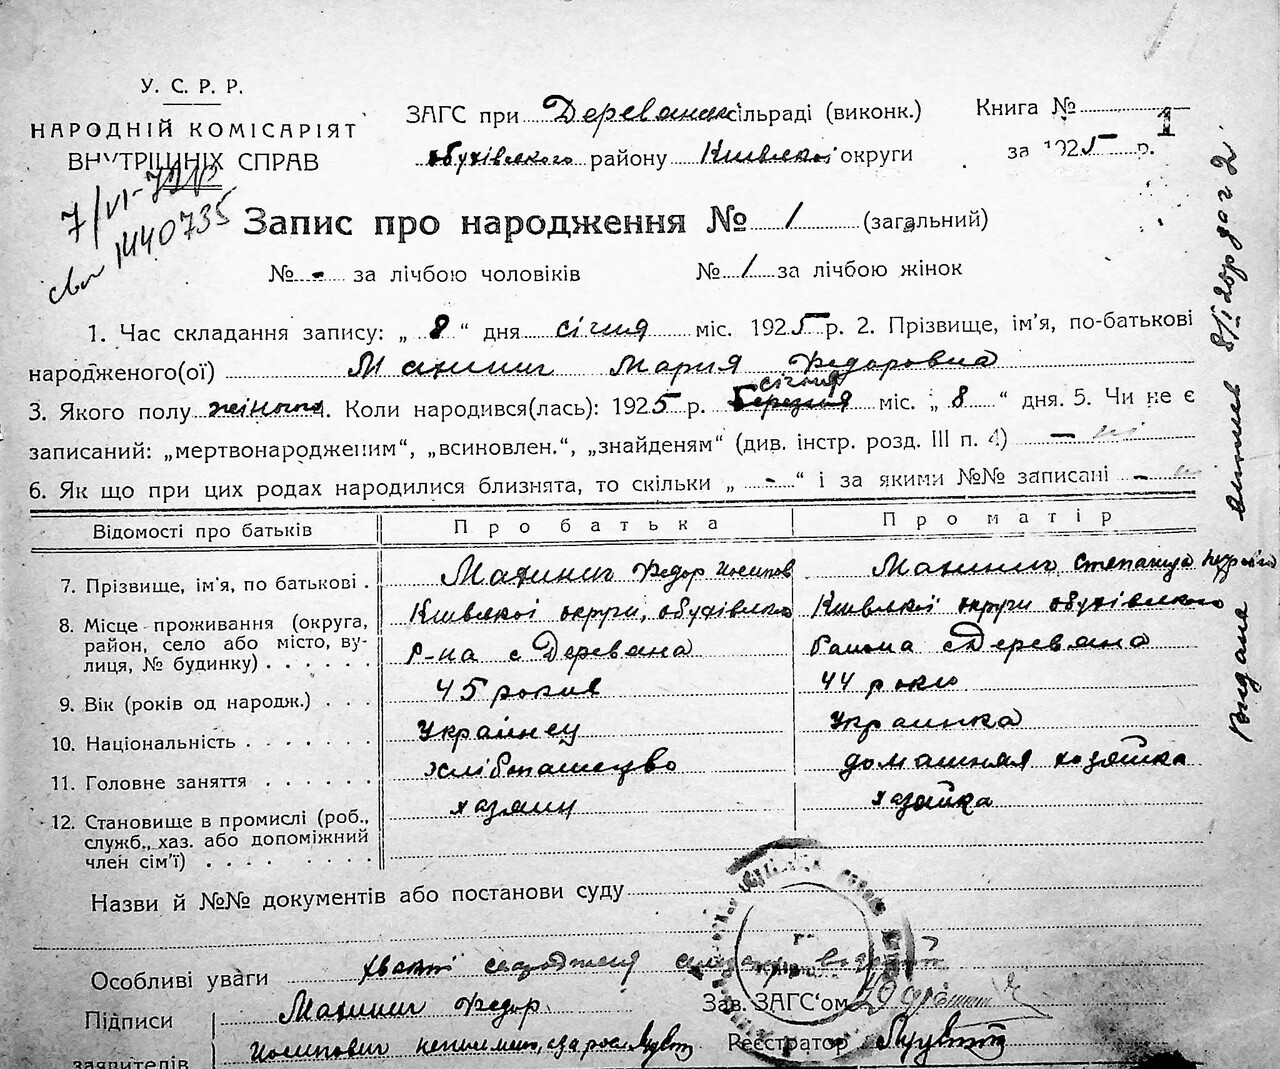 У. С. Р. Р.
НАРОДНІЙ КОМІСАРІЯТ
ВНУТРІШНІХ СПРАВ
ЗАГС при Деревянск сільраді (виконк.)
обухівского району Київської округи
Книга №
1
за 1925 р.
7/VI-
1440735
Запис про народження № 1 (загальний)
№ - за лічбою чоловіків № 1 за лічбою жінок
1. Час складання запису: „ 8 “ дня січня міс. 1925 р. 2. Прізвище, ім’я, по-батькові
народженого(ої) Мария Федоровна
січня
3. Якого полу жіночо 4. Коли народився(лась): 1925 р. березня міс. „ 8 “ дня. 5. Чи не є
записаний: „мертвонародженим“, „всиновлен.“, „знайденям“ (див. інстр. розд. III п. 4) — ні
6. Як що при цих родах народилися близнята, то скільки „ - “ і за якими №№ записані -
Відомості про батьків Про батька Про матір
7. Прізвище, ім'я, по батькові . Федор Иосипов Степанида
8. Місце проживання (округа, район, село або місто, вулиця, № будинку) . . . . . .
Київскої округи, обухівского
р-на с Деревяна
Київскої округи обухівского
района с Деревяна
9. Вік (років од народж.) . . . 45 роков 44 роки
10. Національність . . . . . . . Украінец Украинка
11. Головне заняття . . . . . . хліботашество домашняя хозяйка
12. Становище в промислі (роб., служб., хаз. або допоміжний член сім’ї) . . . . . . . хазяин хазяйка
Назви й №№ документів або постанови суду
Особливі уваги
Підписи
заявителів
Федор
Иосипович
Зав. ЗАГС‘ом
Реєстратор
Видана